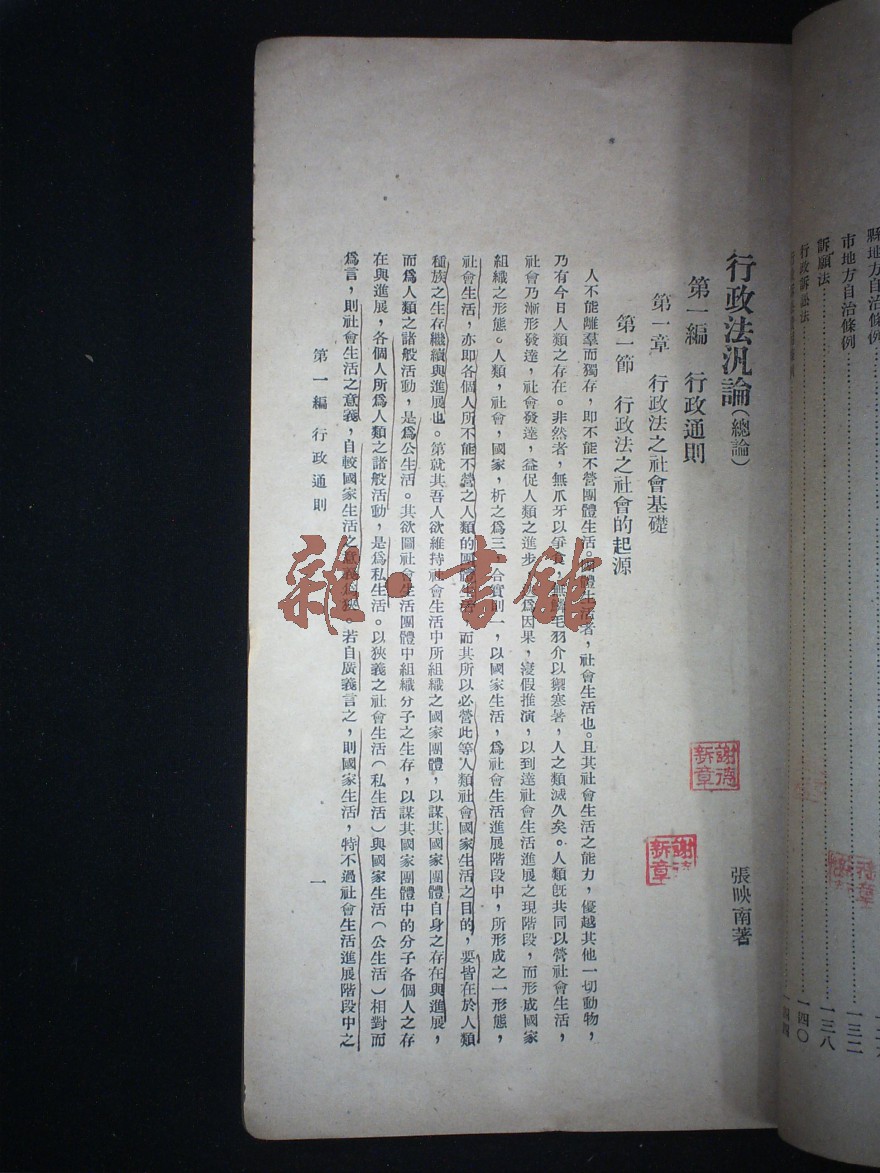 縣地方自治條例
市地方自治條例……一三二
訴願法……一三八
行政訴訟法……一四〇
一四四
行政法汎論(總論)
張映南著
第一編 行政通則
第一章 行政法之社會基礎
第一節 行政法之社會的起源
人不能離羣而獨存,即不能不營團體生活。團體生活者,社會生活也。且其社會生活之能力,優越其他一切動物,
乃有今日人類之存在。非然者,無爪牙以爭 毛羽介以禦寒暑,人之類滅久矣。人類既共同以營社會生活,
社會乃漸形發達,社會發達,益促人類之進步 爲因果,寖假推演,以到達社會生活進展之現階段,而形成國家
組織之形態。人類,社會,國家,析之爲三,合實則一,以國家生活,爲社會生活進展階段中,所形成之一形態,
社會生活,亦即各個人所不能不營之人類的團體生活,而其所以必營此等人類社會國家生活之目的,要皆在於人類
種族之生存繼續與進展也。第就其吾人欲維持社會生活中所組織之國家團體,以謀其國家團體自身之存在與進展,
而爲人類之諸般活動,是爲公生活。其欲圖社會生活團體中組織分子之生存,以謀其國家團體中的分子各個人之存
在與進展,各個人所爲人類之諸般活動,是爲私生活。以狹義之社會生活(私生活)與國家生活(公生活)相對而
爲言,則社會生活之意義,自較國家生活之意義爲狹。若自廣義言之,則國家生活,特不過社會生活進展階段中之
第一編 行政通則
一
謝德新章
謝 新章
雜·書館